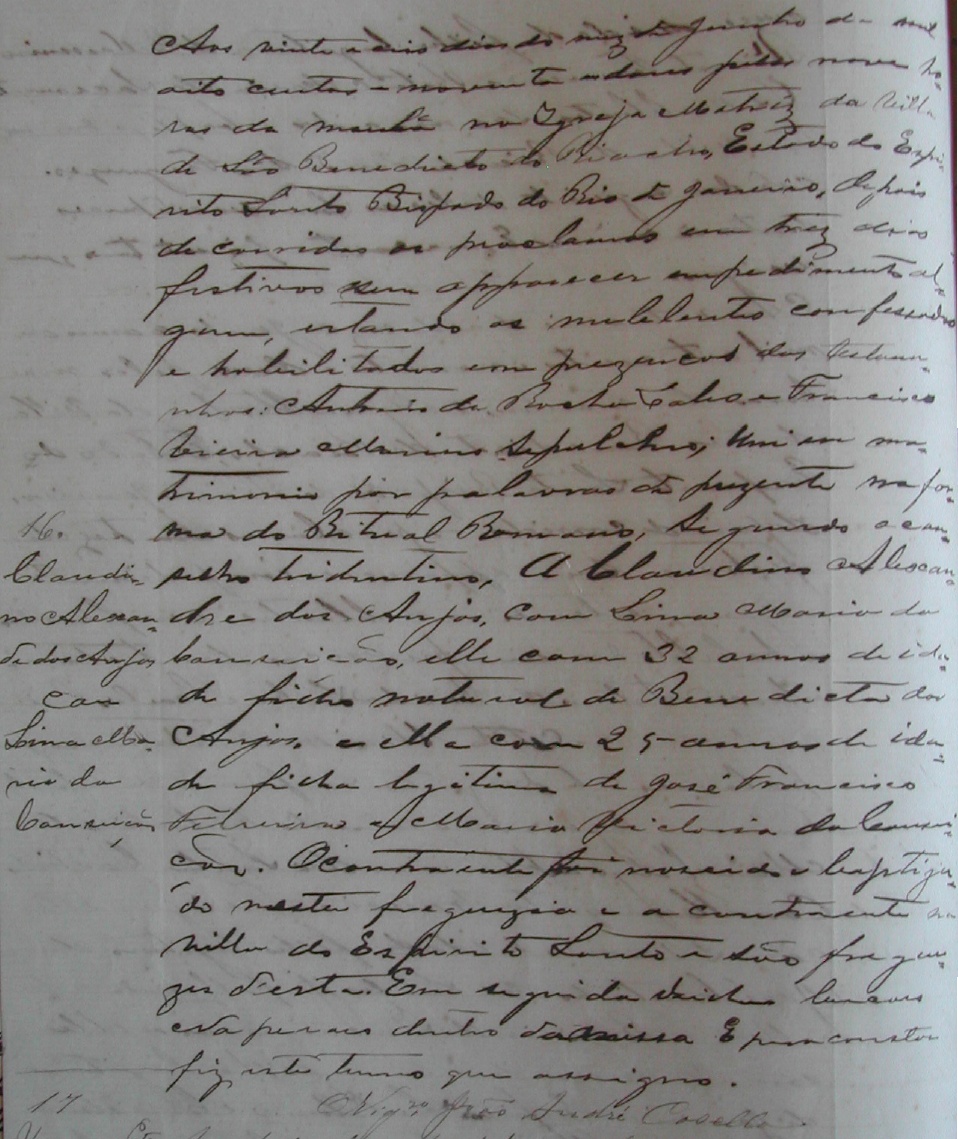 Aos vinte e seis dias do mez de Junho de mil
oito centos e noventa e dous pelas nove ho-
ras da manhã na Igreja Matriz da Villa
de São Benedicto do Riacho, Estado do Espi-
rito Santo Bispado do Rio de Janeiro, depois
de corridos os proclamas em trez dias
festivos sem apparecer empedimento al-
gum, estando os nubentes confessados
e habilitados em prezença das testemu-
nhas: Antonio da Rocha e Francisco
Vieira Marins Sepulchro; Uni em ma-
trimonio por palavras de prezente na for-
ma do Ritual Romano, segundo o con-
tridentino, A Claudino Alexan-
dre dos Anjos, com Lina Maria da
Conseicão, elle com 32 annos de ida-
de ficho natural de Benedicta dos
Anjos, e ella com 25 annos de ida-
de ficha legitima de José Francisco
e Maria Victoria da Consei-
cão. O contraente foi nascido e baptiza-
do nesta freguezia e a contraente na
villa do Espirito Santo e são fregue-
zes d'esta. Em seguida
dentro da missa E para constar
fiz este termo que assigno.
Vigro João André Casella
16.
Claudi-
no Alexan-
de dos Anjos
com
Lina Ma-
ria da
Conseicão
17